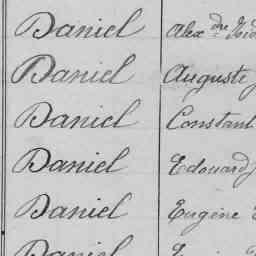 Daniel Alex^dre
Daniel Auguste
Daniel Constant
Daniel Edouard
Daniel Eugène
Daniel